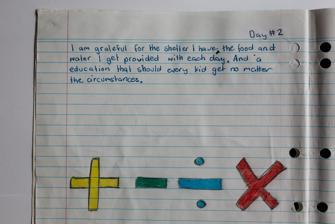 Day #2
I am grateful for the shelter I have, the food and
water I get provided with each day. And a
education that should every kid get no matter
the circumstances.
+ - ÷ ×